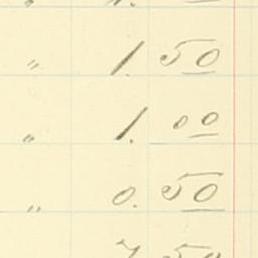 " 1. 50
" 1. 00
" 0. 50